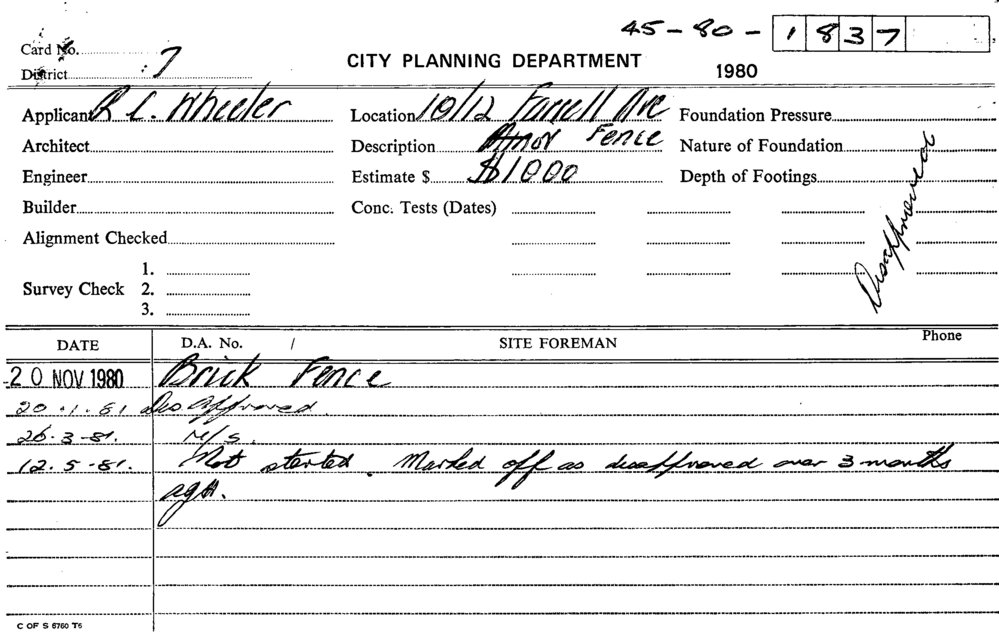 45-80-1837
Card No.
District 7
CITY PLANNING DEPARTMENT
1980
Applicant R L. Wheeler Location 10/12 Farrell Ave Foundation Pressure
Architect Description Fence Nature of Foundation
Engineer Estimate $ $1000 Depth of Footings
Builder Conc. Tests (Dates)
Alignment Checked
Disapproved
1.
Survey Check 2.
3.
DATE D.A. No. / SITE FOREMAN Phone
20 NOV 1980 Brick Fence
20.1.81 Dis Approved.
26.3-81. N/S.
12.5-81. Not started. Marked off as disapproved over 3 months
ago.
C OF S 6760 T6